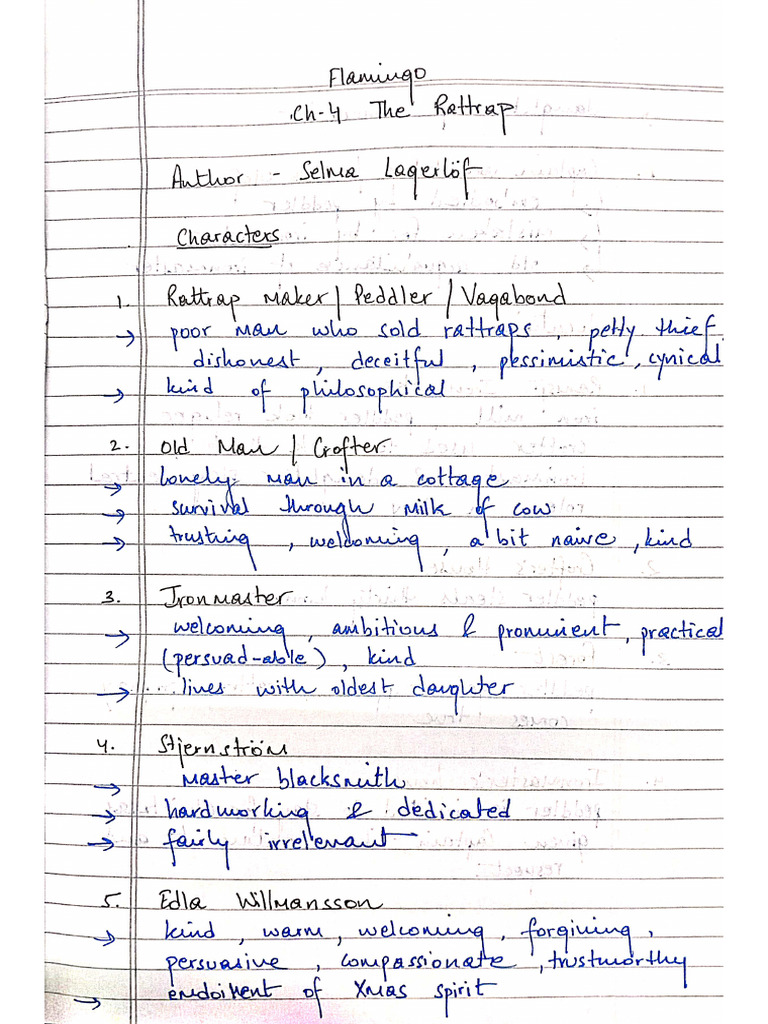 Flamingo
Ch-4 The Rattrap
Author - Selma Lagerlöf
Characters
1. Rattrap Maker / Peddler / Vagabond
→ poor man who sold rattraps, petty thief
dishonest, deceitful, plessimistic, cynical
→ kind of philosophical
2. Old Man / Crofter
→ lonely man in a cottage
→ survival through milk of cow
→ trusting, welcoming, a bit naive, kind
3. Ironmaster
→ welcoming, ambitious & prominent, practical
(persuad-able), kind
→ lives with oldest daughter
4. Stjernström
→ Master blacksmith
→ hardworking & dedicated
→ fairly irrelevant
5. Edla Willmansson
→ kind, warm, welcoming, forgiving,
persuasive, compassionate, trustworthy
→ emdoiment of Xmas spirit